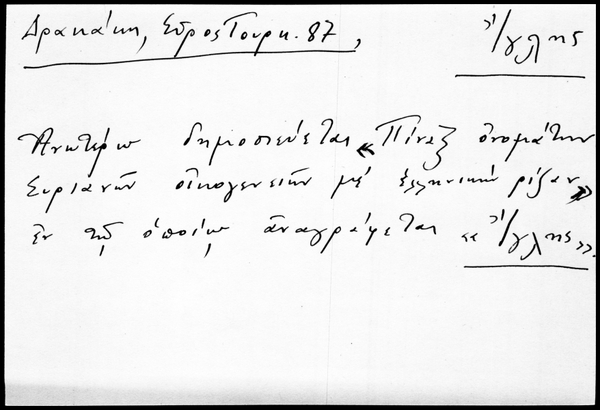 Δρακάκη, Σῦρος Τουρκ. 87,
Ἴγλης
Ἀνωτέρω δημοσιεύεται «Πίναξ ὀνομάτων
Συριανῶν οἰκογενειῶν μὲ ἑλληνικὴν ρίζαν»
ἐν τῷ ὁποίῳ ἀναγράφεται «Ἴγλης».